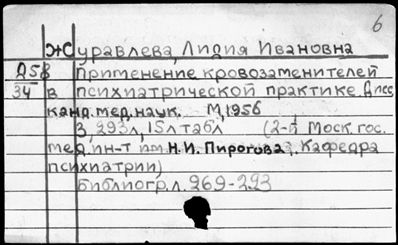 6
Журавлева, Лидия Ивановна
Д58
34
Применение кровозаменителей
в психиатрической практике. Дисс.
канд. мед. наук. М, 1956
3, 293 л, 15 л табл (2-й Моск. гос.
мед. ин-т им. Н.И. Пирогова. Кафедра
психиатрии)
Библиогр. л. 269-293